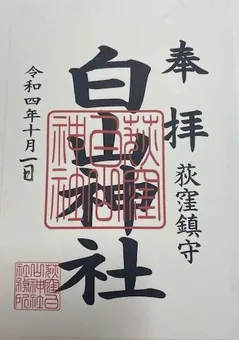 奉拝
荻窪鎮守
白山神社
荻窪
白山
神社
令和四年十月一日
荻窪白
山神社
社務所